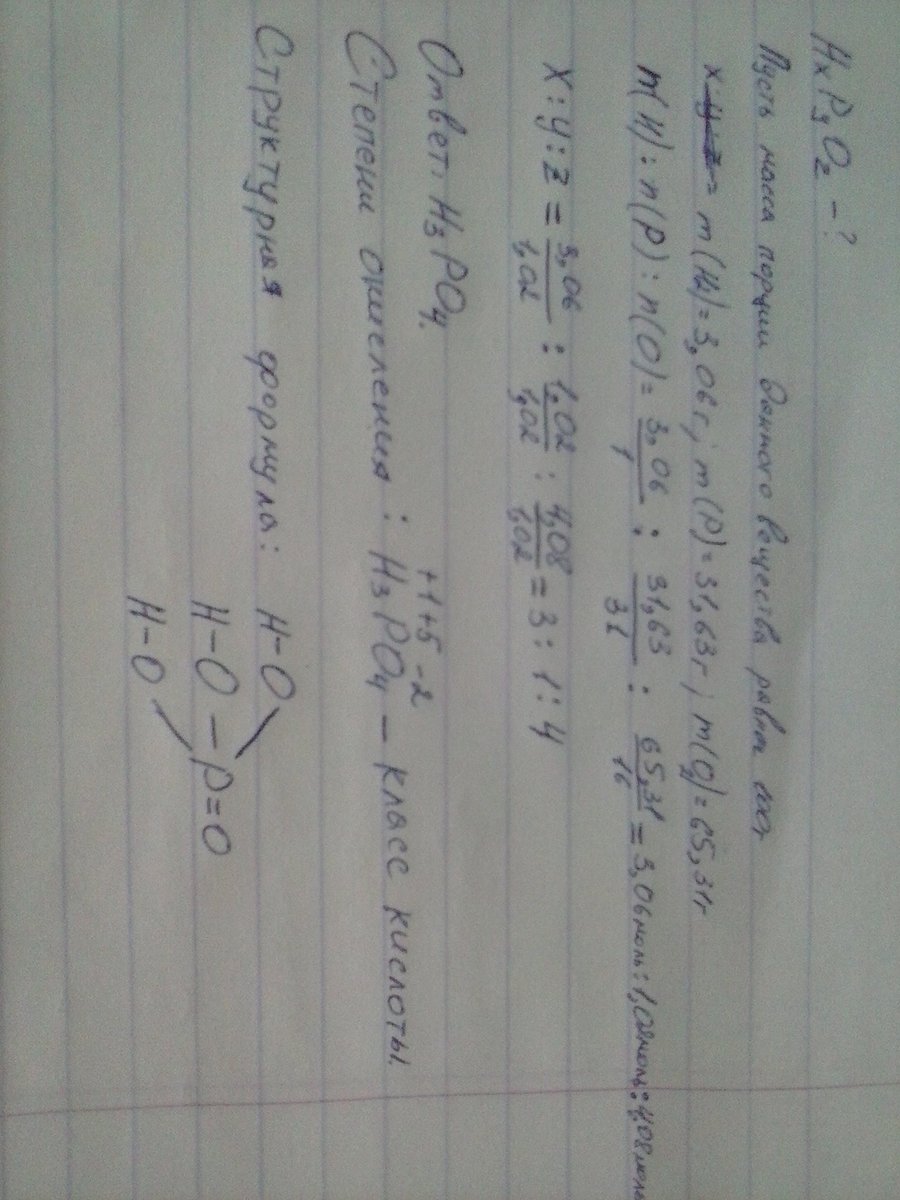 HxPyOz - ?
Пусть масса порции данного вещества равна 100г
x y z = m(H)=3,06г; m(P)=31,63г; m(O)=65,31г
n(H) : n(P) : n(O) = 3,06/1 : 31,63/31 : 65,31/16 = 3,06моль : 1,02моль : 4,08моль
x : y : z = 3,06/1,02 : 1,02/1,02 : 4,08/1,02 = 3 : 1 : 4
Ответ: H3PO4.
+1 +5 -2
Степени окисления : H3PO4 - класс кислоты.
Структурная формула: H-O
H-O-P=O
H-O